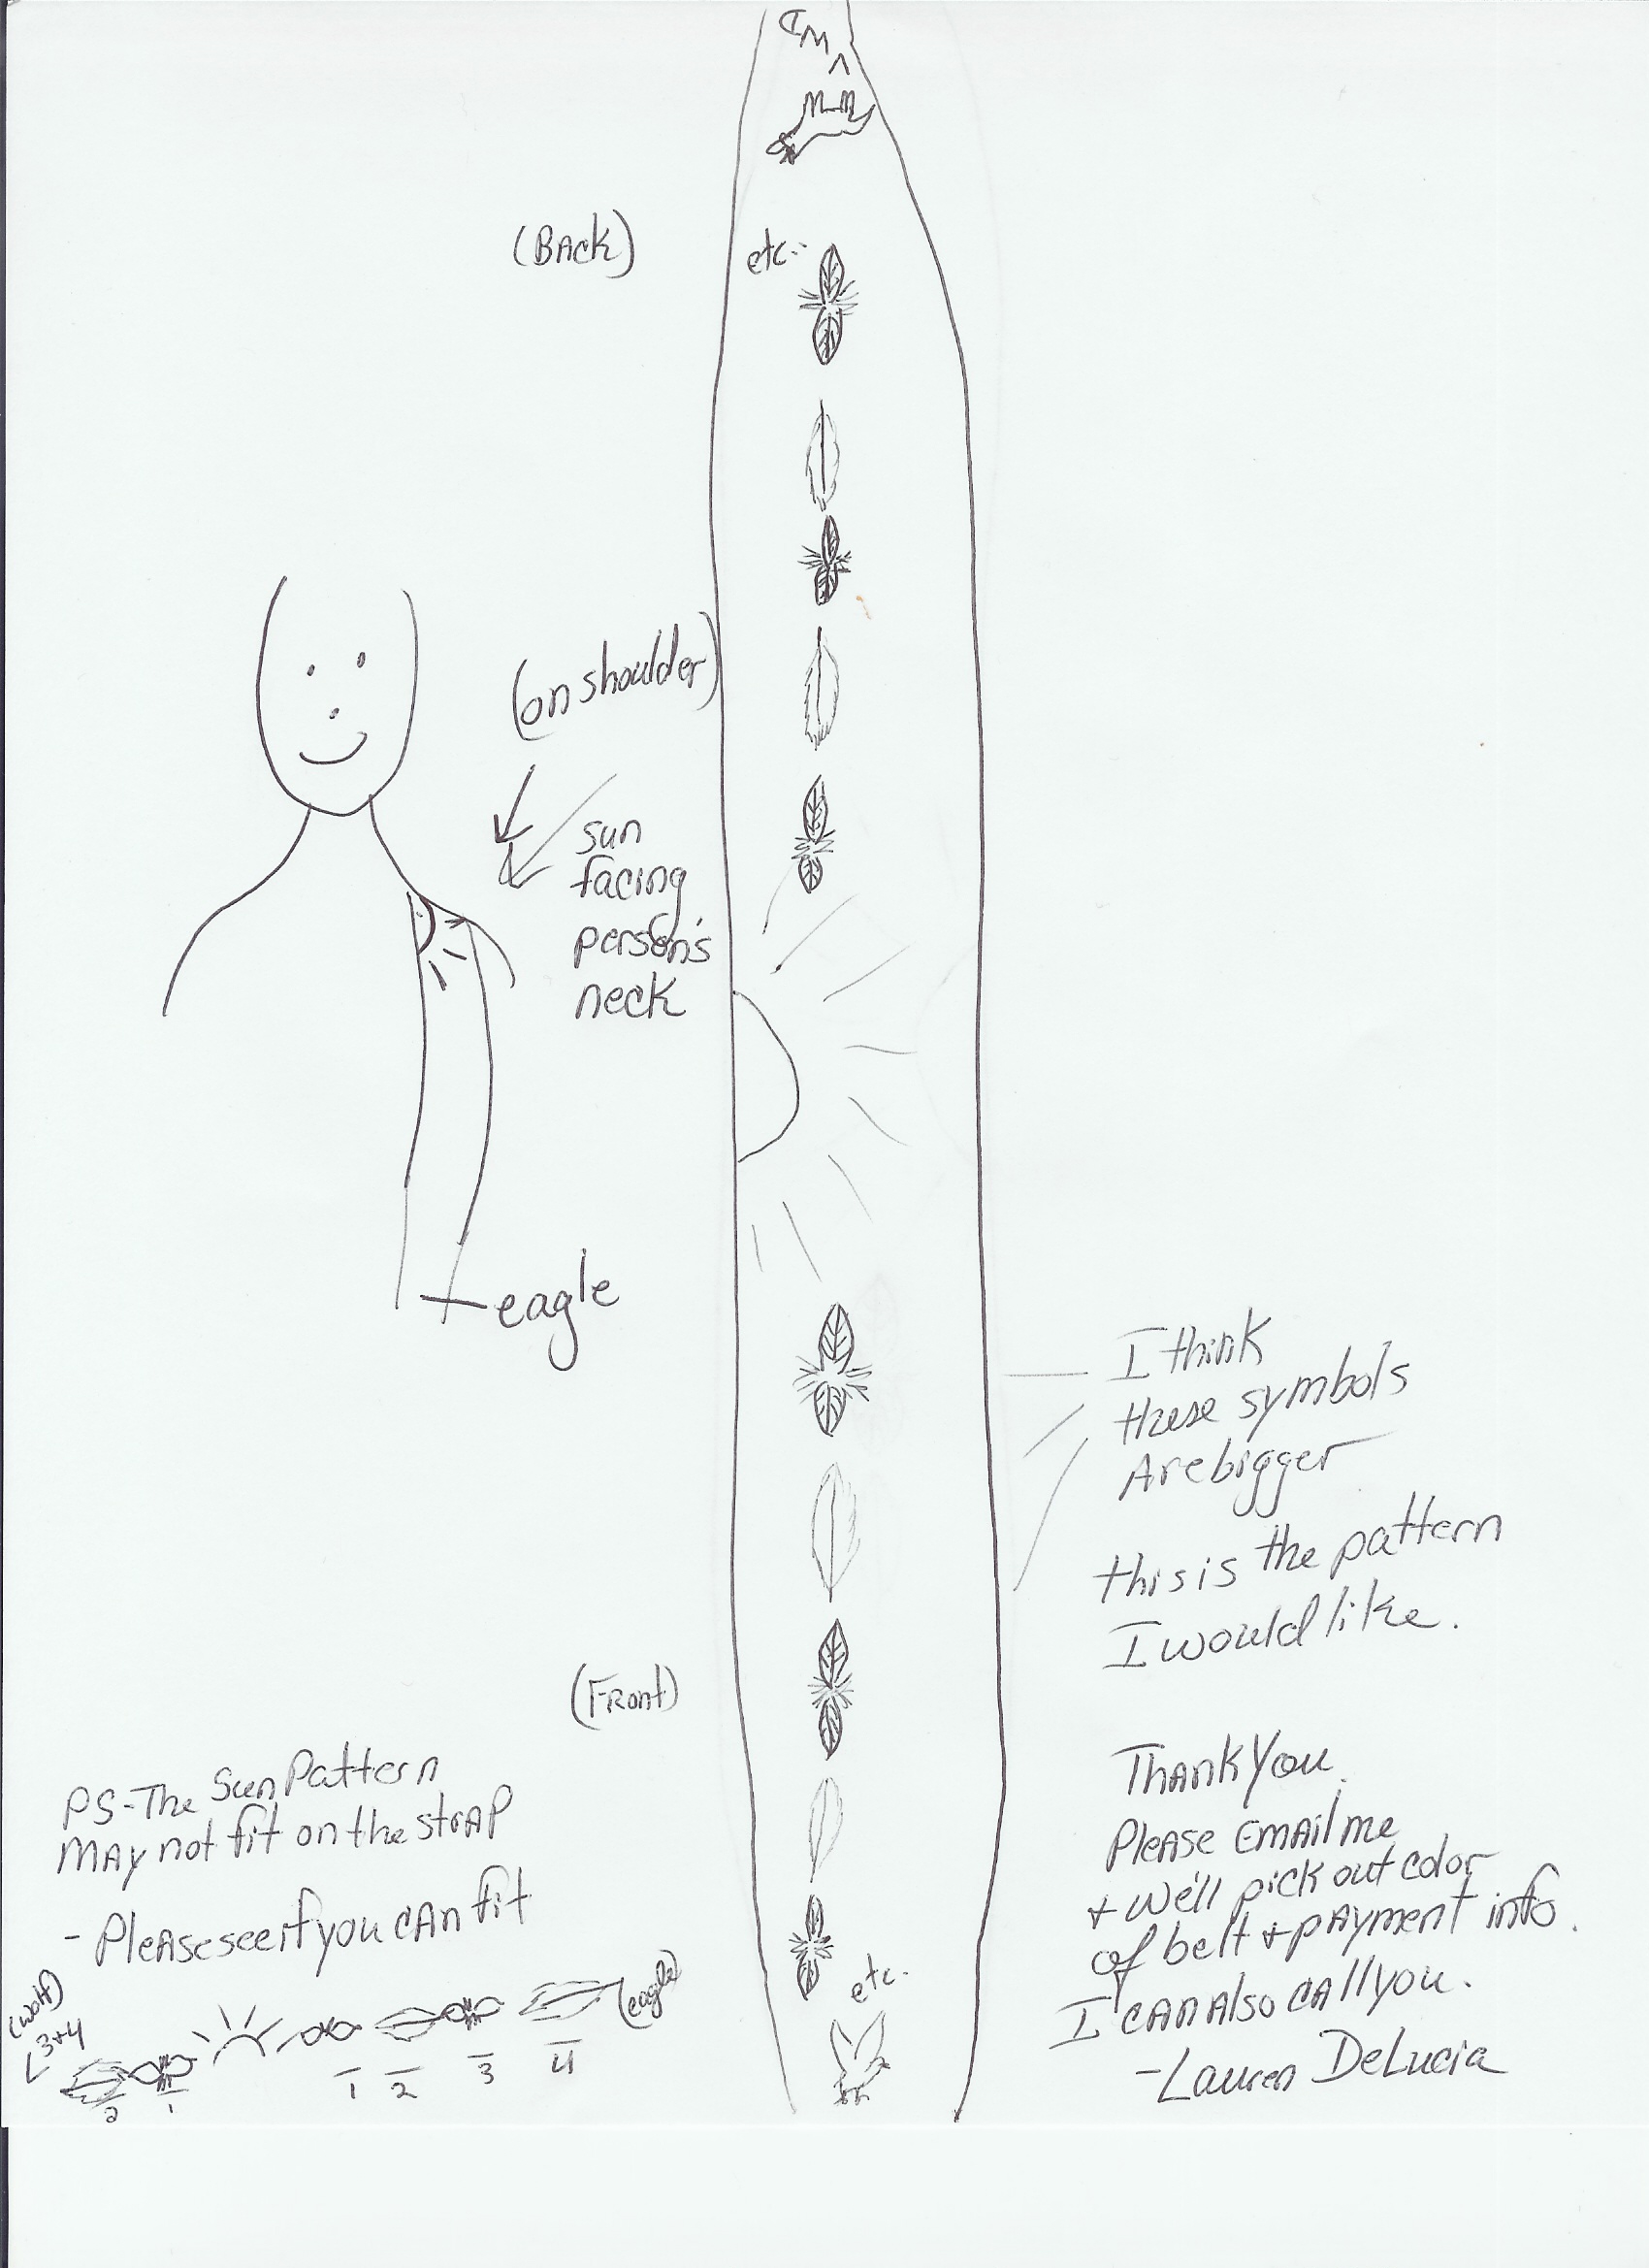 (BACK)
etc.
(on shoulder)
sun
facing
person's
neck
eagle
I think
these symbols
Are bigger
this is the pattern
I would like.
(FRont)
PS-The Sun Pattern
MAY not fit on the strAP
- PleAse see if you cAn fit
(wolf)
3+4
2
1
1
2
3
4
(eagle)
etc.
ThANK You.
PleAse EMAil me
+ we'll pick out color
of belt + pAyment info.
I cAn Also cAll you.
-Lauren DeLucia